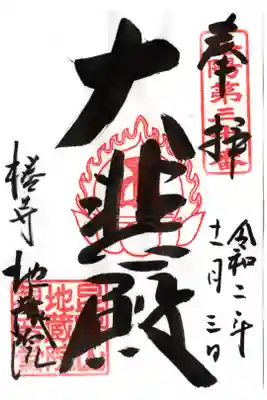 奉拝
令和二年
十一月三日
大悲殿
椿寺
地蔵院